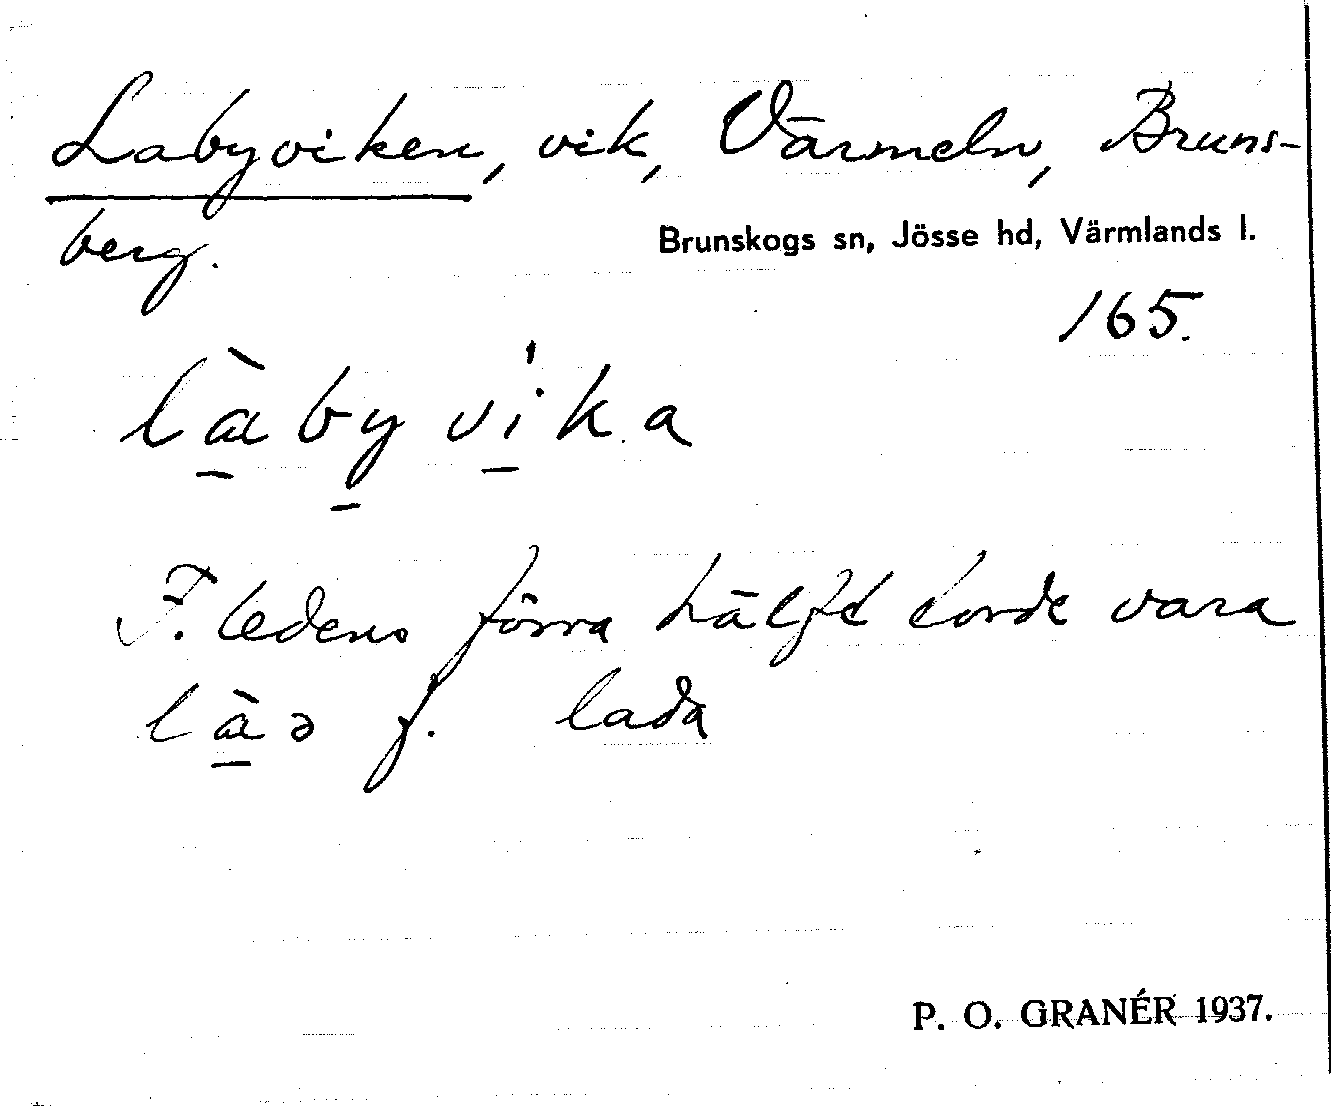 Labyviken, vik, Värmeln, Bruns-
berg.
Brunskogs sn, Jösse hd, Värmlands l.
165.
l̀a̱by̱ví̱ka
F. ledens förra hälft torde vara
là̱ə f. lada
P. O. GRANÉR 1937.